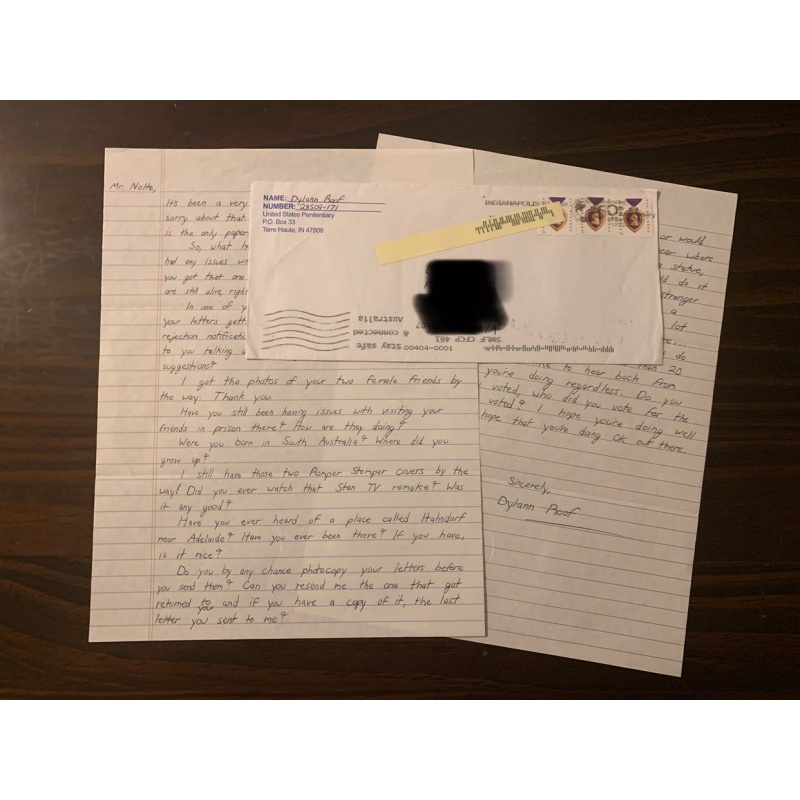 Mr. Nolte,
Its been a very
sorry about that.
is the only paper
So, what h
had any issues wi
you got that one
are still alive, right
In one of y
your letters gett
rejection notificatio
to you talking a
suggestions?
I got the photos of your two female friends by
the way. Thank you.
Have you still been having issues with visiting your
friends in prison there? How are they doing?
Were you born in South Australia? Where did you
grow up?
I still have those two Romper Stomper covers by the
way! Did you ever watch that Stan TV remake? Was
it any good?
Have you ever heard of a place called Hahndorf
near Adelaide? Have you ever been there? If you have,
is it nice?
Do you by any chance photocopy your letters before
you send them? Can you resend me the one that got
returned to you and if you have a copy of it, the last
letter you sent to me?
NAME: Dylann Roof
NUMBER: 28509-171
United States Penitentiary
P.O. Box 33
Terre Haute, IN 47808
INDIANAPOLIS
Stay safe
& connected
Australia
SWLF CFCP 461
00404-0001
or would
ear where
a statue,
ld do it
stranger
a
lot
re.
do
than 20
me to hear back from
you're doing regardless. Do you
voted, who did you vote for the
voted? I hope you're doing well
hope that you're doing OK out there.
Sincerely,
Dylann Roof